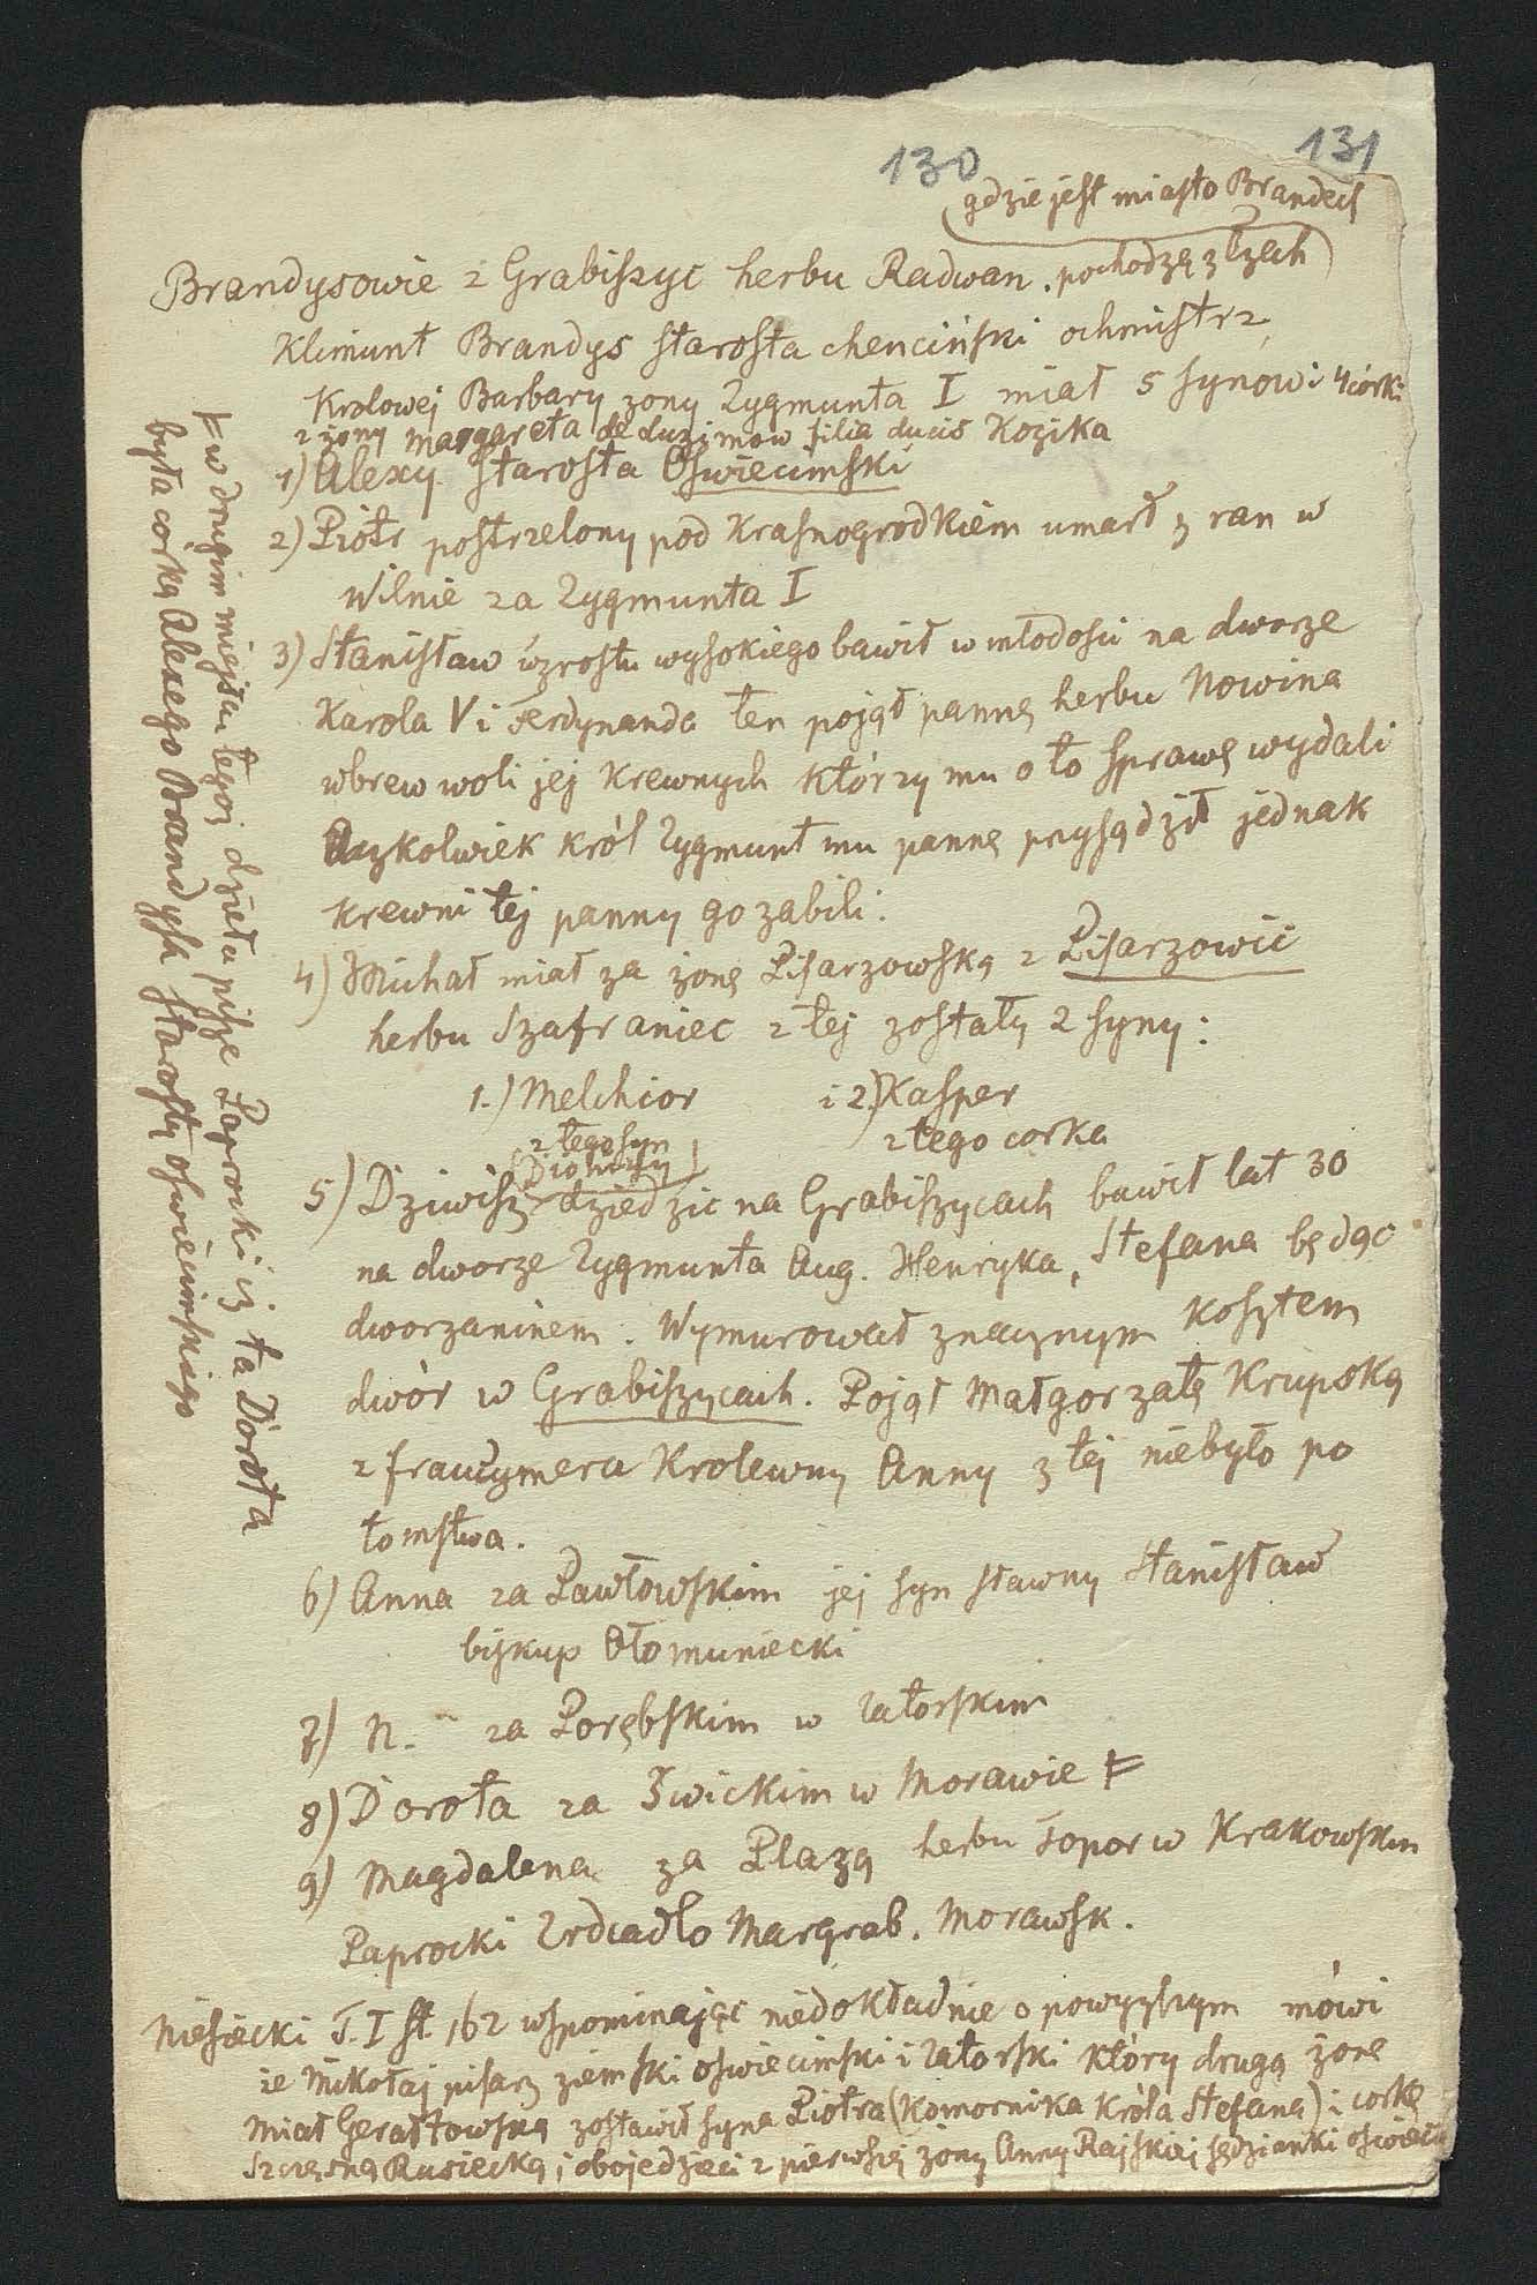 130
131
gdzie jest miasto Brandeis
Brandysowie z Grabiszyc herbu Radwan. pochodzą z Czech
Klimunt Brandys starosta chenciński ochmistrz
Krolowej Barbary zony Zygmunta I miał 5 synow i 4 córki
z żony Margareta de Luzimow filia ducis Kozika
1) Alexy starosta Oswiecimski
2) Piotr postrzelony pod Krasnogrodkiem umarł z ran w
Wilnie za Zygmunta I
3) Stanisław wzrostu wysokiego bawił w młodosci na dworze
Karola V i Ferdynanda ten pojął pannę herbu Nowina
wbrew woli jej Krewnych którzy mu o to sprawę wydali
Aczkolwiek król Zygmunt mu pannę przysądził jednak
krewni tej panny go zabili.
4) Michał miał za żonę Pisarzowską z Pisarzowic
herbu Szafraniec z tej zostały 2 syny:
1.) Melchior i 2.) Kasper
z tego syn z tego corka
(Dionizy)
5) Dziwisz dziedzic na Grabiszycach bawił lat 30
na dworze Zygmunta Aug. Henryka, Stefana będąc
dworzaninem. Wymurował znacznym kosztem
dwór w Grabiszycach. Pojął Małgorzatę Krupską
z fraucymera Krolewny Anny z tej niebyło po
tomstwa.
6) Anna za Pawłowskim jej syn sławny Stanisław
biskup Ołomuniecki
7) N. - za Porębskim w Zatorskim
8) Dorota za Żwickim w Morawie Ⅎ
9) Magdalena za Plazą herbu Topor w Krakowskim
Paprocki Zrdcadlo Margrab. Morawsk.
Niesiecki T. I st. 162 wspominając niedokładnie o powyższym mówi
że Mikołaj pisarz ziemski oswiecimski i Zatorski który drugą żonę
miał Gerałtowską zostawił syna Piotra (Komornika Króla Stefana) i corkę
Szczęsną Rusiecką, i oboje dzieci z pierwszej żony Anny Rajskiej sędzianki oświecim
Ⅎ w drugim miejscu tegoż dzieła pisze Paprocki iż ta Dorota
była corką Alexego Brandysa starosty oswiecimskiego